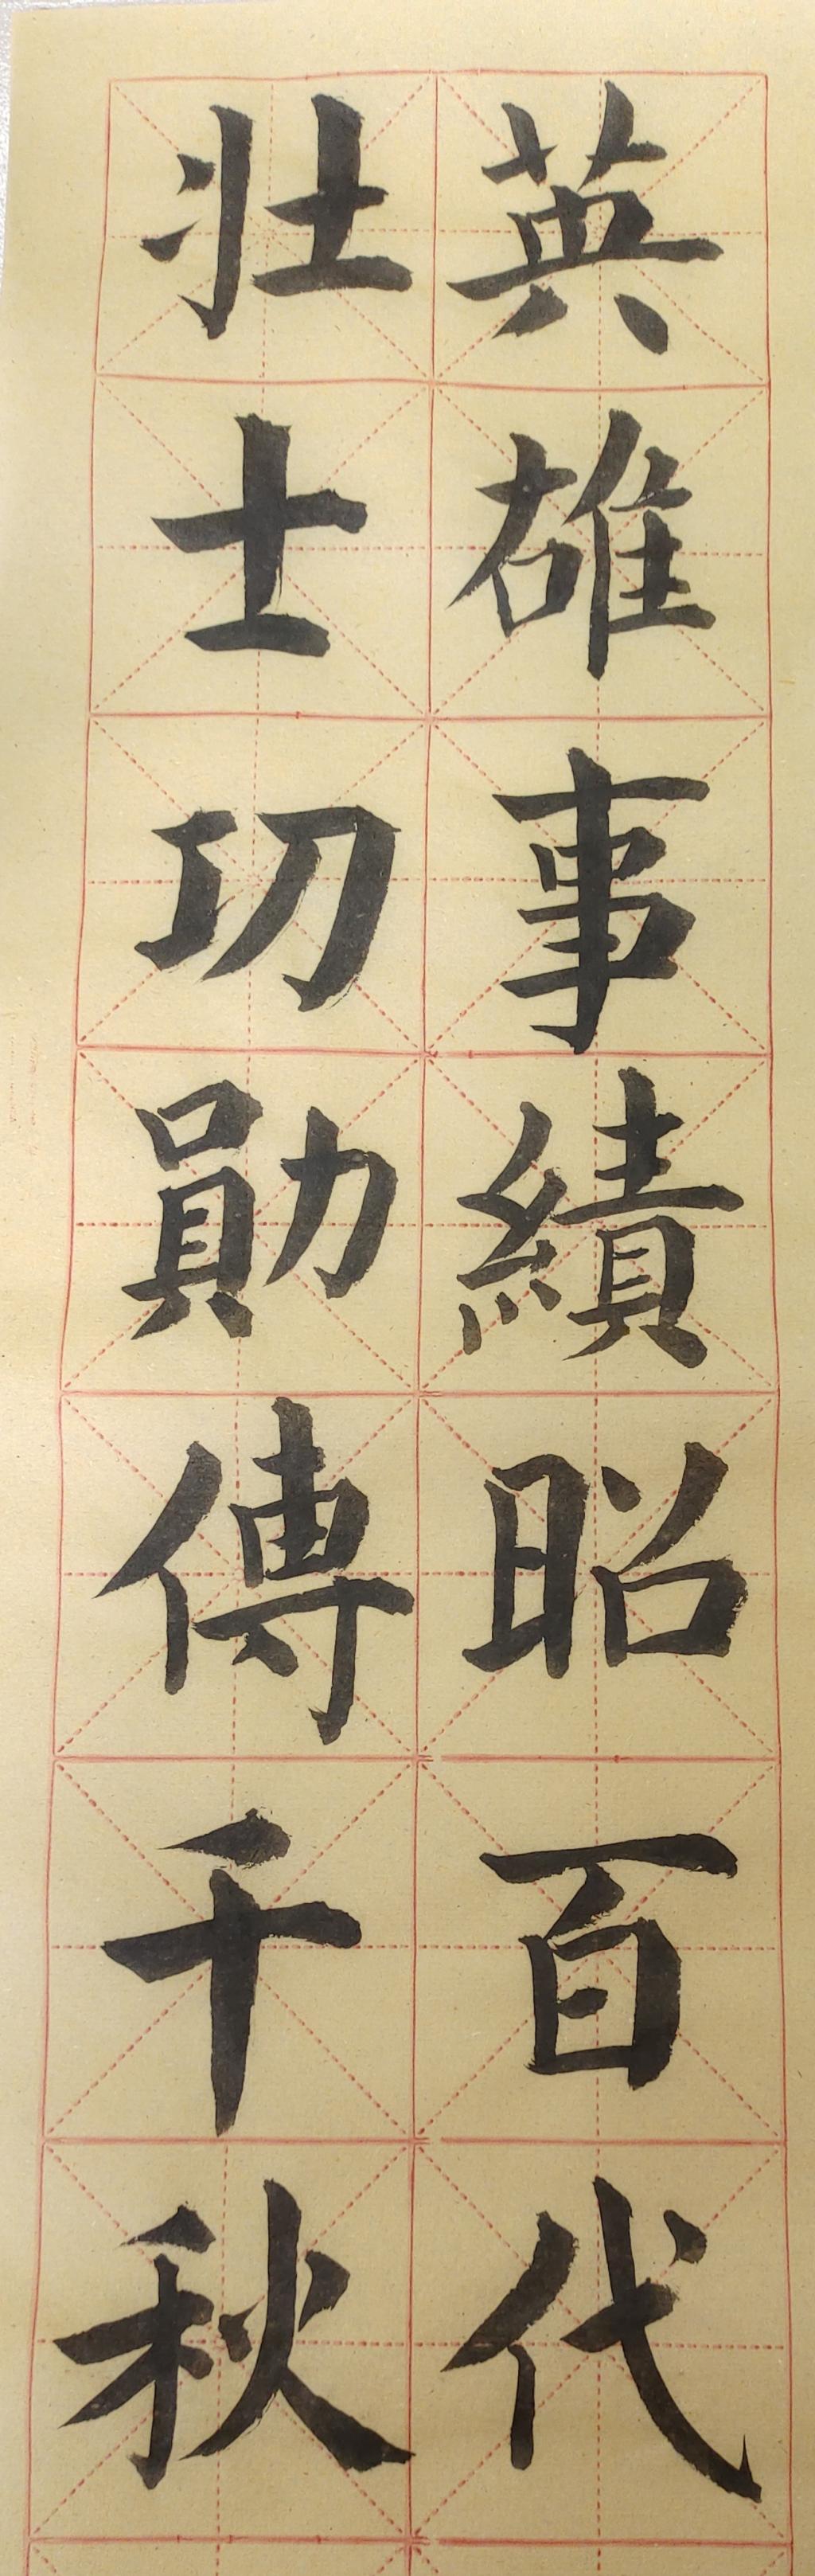 英雄事績昭百代
壮士功勛傳千秋